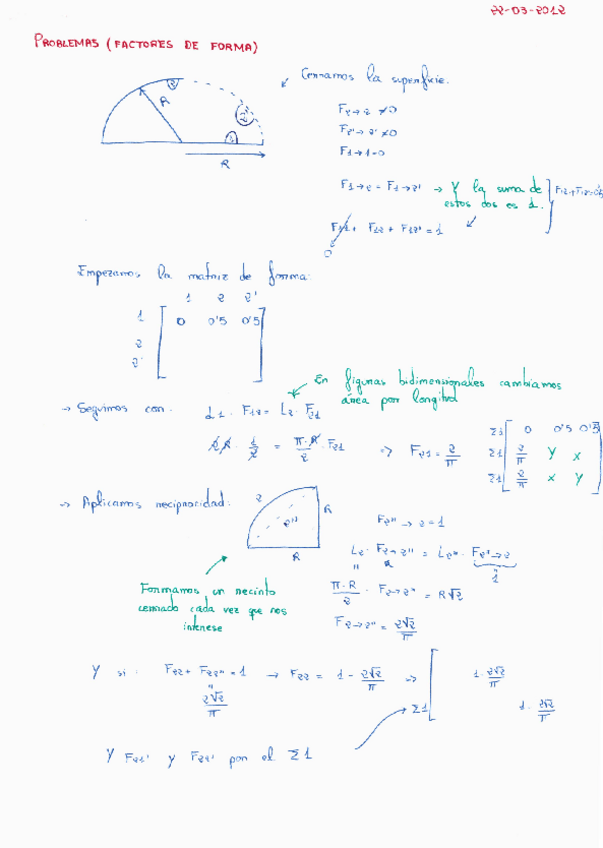 22-03-2012
PROBLEMAS (FACTORES DE FORMA)
Cerramos la superficie.
3
R
2'
1
R
F2→2 ≠0
F2'→2' ≠0
F1→1=0
F1→2 = F1→2' → Y la suma de
estos dos es 1.
F11 + F12 + F12' = 1
0
Empezamos la matriz de forma:
1 2 2'
1 0 0'5 0'5
2
2'
En figuras bidimensionales cambiamos
área por longitud
→ Seguimos con: L1 · F12 = L2 · F21
2R · 1/2 = π·R/2 · F21 => F21 = 2/π
Σ1 0 0'5 0'5
Σ1 2/π y x
Σ1 2/π x y
→ Aplicamos reciprocidad:
2
2''
R
R
F2''→2=1
L2 · F2→2'' = L2'' · F2''→2
1
π·R/2 · F2→2'' = R√2
F2→2'' = 2√2/π
Formamos un recinto
cerrado cada vez que nos
interese
Y si: F22 + F22'' = 1 → F22 = 1 - 2√2/π =>
2√2/π
1-2√2/π
1-2√2/π
→ Σ1
Y F22' y F22' por el Σ1